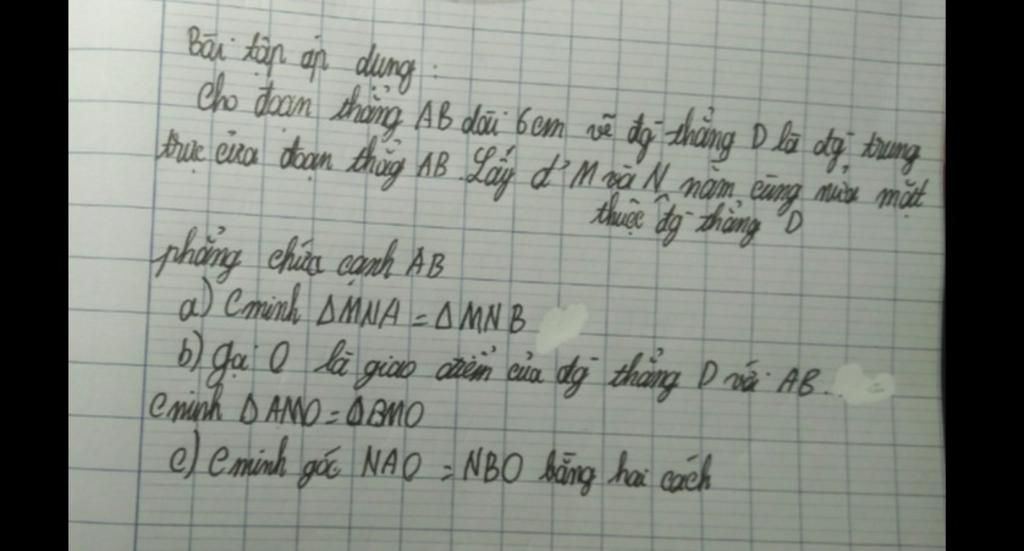 Bài tập áp dụng :
Cho đoạn thẳng AB dài 6cm vẽ đg thẳng D là đg trung
trực của đoạn thẳg AB. Lấy đ' M và N nằm cùng nửa mặt
thuộc đg thẳng D
phẳng chứa cạnh AB
a) Cminh ΔMNA = ΔMNB
b) Gọi O là giao điểm của đg thẳng D với AB.
Cminh ΔAMO = ΔBMO
c) Cminh góc NAO = NBO bằng hai cách